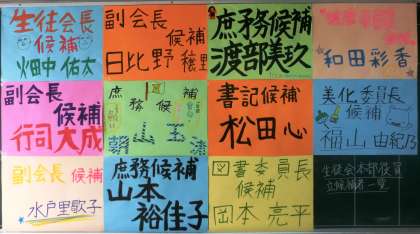 生徒会長
候補
畑中佑太
副会長
候補
日比野穂里
庶務候補
渡部美玖
和田彩香
副会長
候補
行司大成
庶務候補
書記候補
松田心
美化委員長
候補
福山由紀乃
副会長候補
水戸里歌子
庶務候補
山本
裕佳子
図書委員長
候補
岡本亮平
生徒会本部役員
立候補者一覧